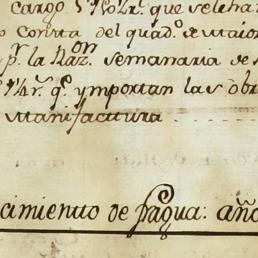 cargo 5 1 que se le ha
o conta del quad.º de Maio
p.r la Razon semanaria de
14 r.s q.e ymportan las obr
Manifactura
cimiento de fragua: año